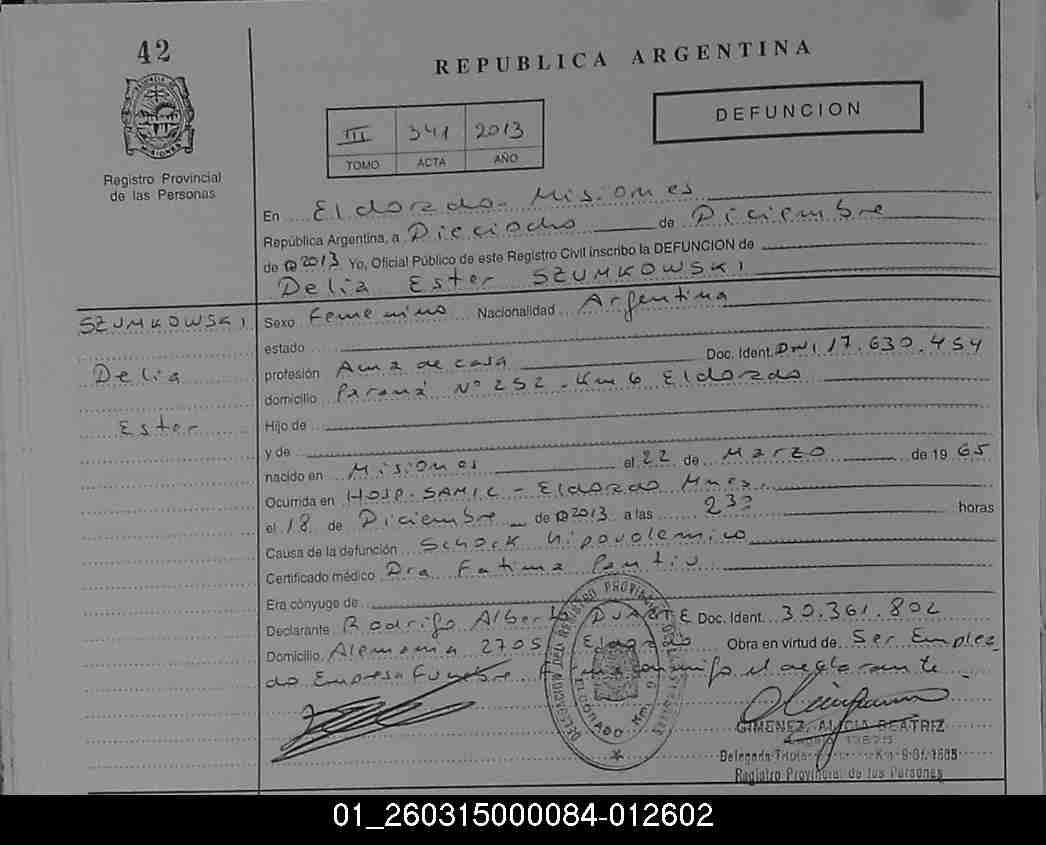 42
REPUBLICA ARGENTINA
DEFUNCION
III 341 2013
TOMO ACTA AÑO
PROVINCIA DE
MISIONES
Registro Provincial
de las Personas
En Eldorado - Misiones
República Argentina, a Dieciocho de Diciembre
de 2013 Yo, Oficial Público de este Registro Civil inscribo la DEFUNCION de
Delia Ester SZUMKOWSKI
SZUMKOWSKI
Delia
Ester
Sexo Femenino Nacionalidad Argentina
estado
profesión Ama de casa Doc. Ident. DNI 17.630.454
domicilio Paraná Nº 252 - Km 6 Eldorado
Hijo de
y de
nacido en Misiones el 22 de Marzo de 19 65
Ocurrida en Hosp. SAMIC - Eldorado Mnes.
el 18 de Diciembre de 2013 a las horas
Causa de la defunción Schock hipovolemico
Certificado médico Dra Fatima
Era cónyuge de
Declarante Rodrigo Alberto DUARTE Doc. Ident. 30.361.802
Domicilio Alemania 2705 Eldorado Obra en virtud de Ser Emplea
do Empresa Funebre Firma conmigo el declarante
DELEGACION DEL REGISTRO PROVINCIAL DE LAS PERSONAS
ELDORADO Mnes.
GIMENEZ, ALICIA BEATRIZ
Delegada Titular
Registro Provincial de las Personas
01_260315000084-012602